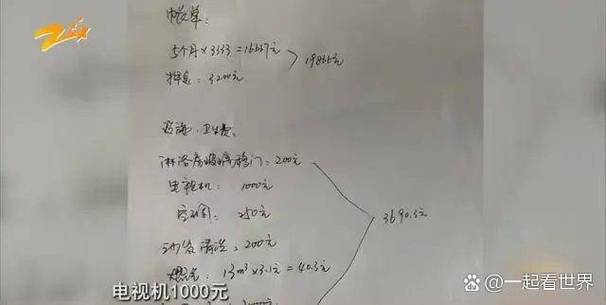 帐单:
5个月×3333=16667元
19866元
押金: 3200元
设施、卫生费:
淋浴房玻璃移门: 200元
电视机: 1000元
250元
3690.3元
沙发清洗: 200元
燃气: 13m³×3.1元=40.3元
电视机1000元
@一起看世界